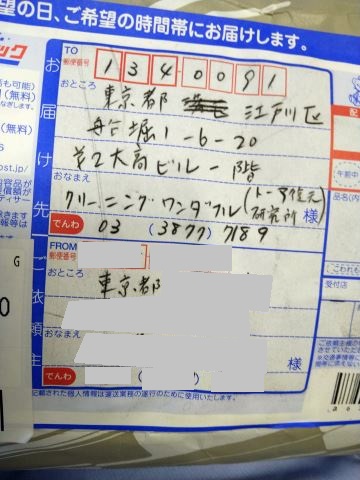 望の日、ご希望の時間帯にお届けします。
TO
郵便番号
134-0091
おところ
東京都 江戸川区
船堀1-6-20
第2大高ビル一階
おなまえ
クリーニングワンダフル(トータル復元研究所 様
でんわ 03 (3877) 7189
お届け先
FROM
郵便番号
おところ
東京都
おなまえ
様
でんわ
ご依頼主
記載された個人情報は運送業務の遂行のために使用いたします。
品名
午前中
こわれも
受付店
ック
も可能)
(無料)
(無料)
ost.jp/
G